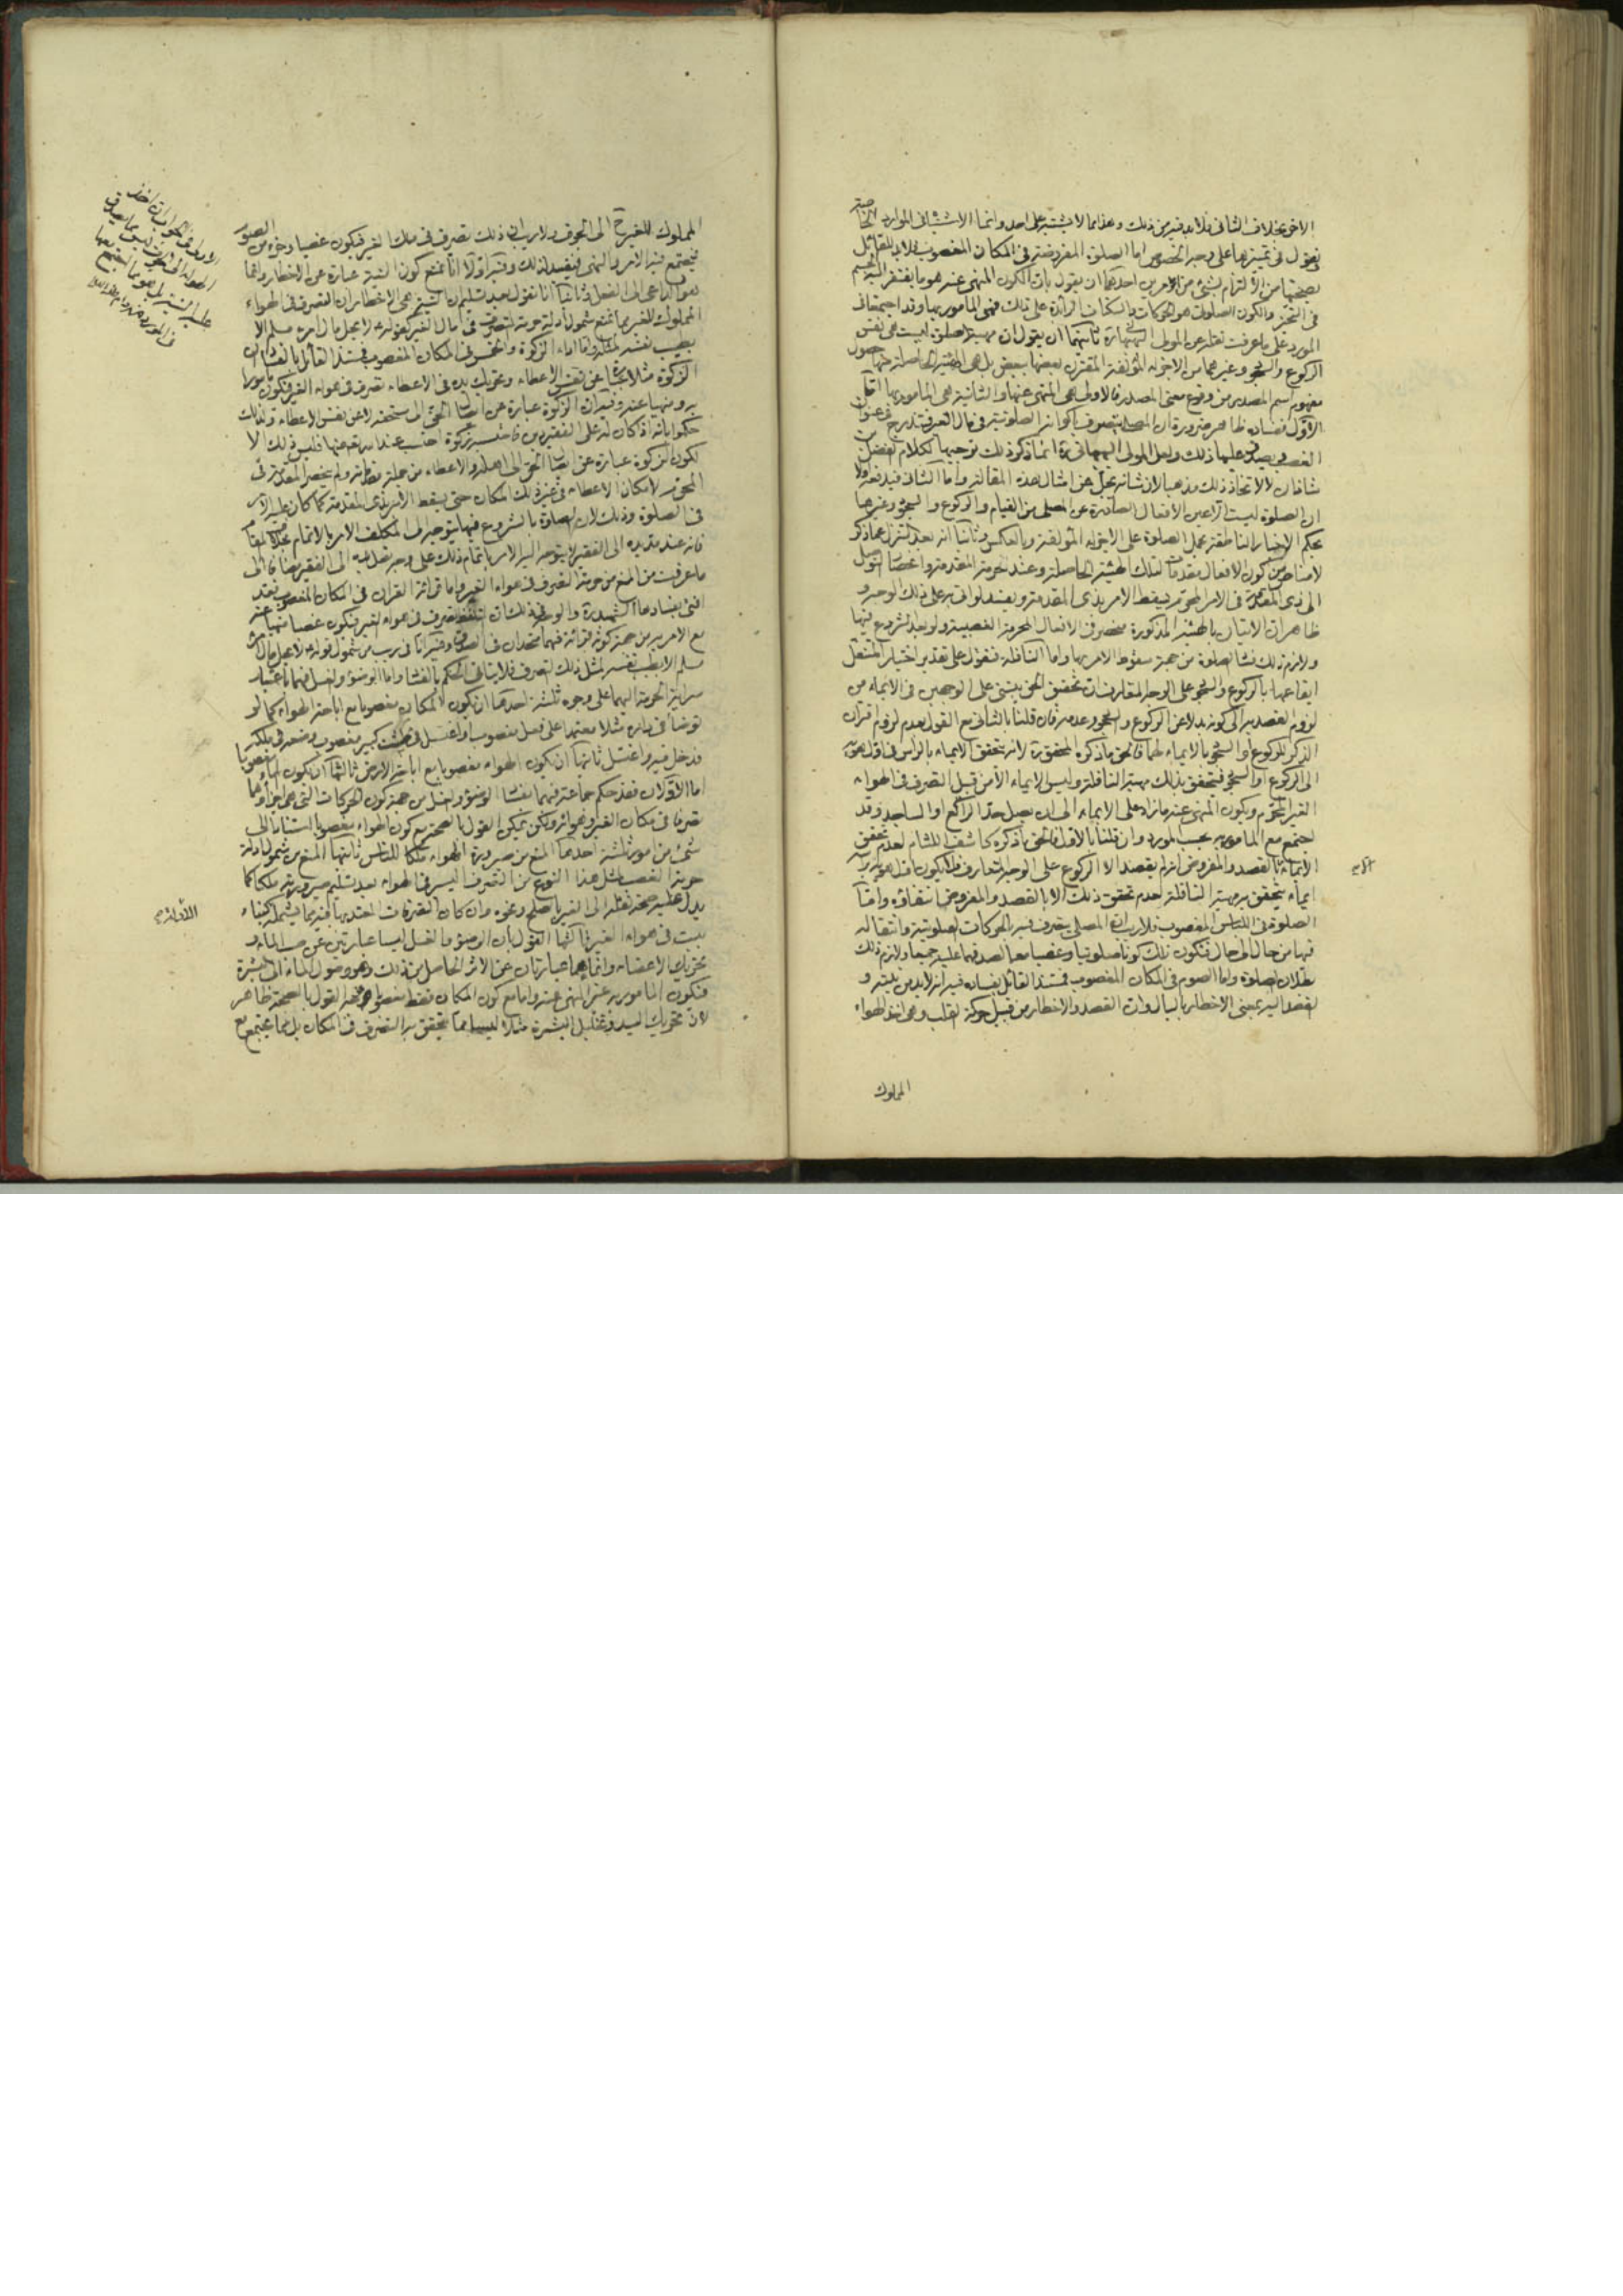 الاخر بخلاف الثانى فلا بد فيه من ذلك وهذا مما لا يشتبه على احد وانما الاشتباه فى الموارد الخاصة
فنقول فى تميزها على وجه الخصوص اما الصلوة المفروضة فى المكان المغصوب فلا بد للقائل
بصحتها من الالتزام بشئ من الامرين احدهما ان يقول بان الكون المنهى عنه هو ما يفتقر اليه الجسم
فى التحيز والكون الصلوتى هو الحركات والسكنات الزائدة على ذلك فهى المأمور بها وقد اجتمعا فى
المورد على ما عرفت نقله عن المولى البهبهانى ره ثانيهما ان يقول ان مهية الصلوة ليست هى نفس
الركوع والسجود وغيرهما من الاجزاء المؤلفة المقترن بعضها ببعض بل هى الهيئة الحاصلة منها حصول
مفهوم اسم المصدر من وقوع معنى المصدر فالاولى هى المنهى عنها والثانية هى المأمور بها اقول
الاول فساده ظاهر ضرورة ان المصلى يتصرف باكوانه الصلوتية فى مال الغير فتندرج فى عنوان
الغصب ويصدق عليها ذلك ولعل المولى البهبهانى ره انما ذكر ذلك توجيها لكلام الفضل بن
شاذان لا لاتخاذ ذلك مذهبا لان شانه يجل عن امثال هذه المقالة واما الثانى فيدفعه اولا
ان الصلوة ليست الا عين الافعال الصادرة عن المصلى من القيام والركوع والسجود وغيرها
بحكم الاخبار الناطقة بحمل الصلوة على الاجزاء المؤلفة وبالعكس وثانيا انه بعد التنزل عما ذكر
لا مناص من كون الافعال مقدمات لتلك الهيئة الحاصلة وعند حرمة المقدمة وانحصار التوصل
الى ذى المقدمة فى الامر المحرم يسقط الامر بذى المقدمة ويفسد لو اتى به على ذلك الوجه و
ظاهر ان الاتيان بالهيئة المذكورة منحصر فى الافعال المحرمة الغصبية ولو بعد الشروع فيها
ولازم ذلك فساد الصلوة من جهة سقوط الامر بها واما النافلة فنقول على تقدير اختيار المتنفل
ايقاعها بالركوع والسجود على الوجه المتعارف ان تحقيق الحق يبتنى على الوجهين فى الايماء من
لزوم القصد به الى كونه بدلا عن الركوع والسجود وعدمه فان قلنا بالثانى مع القول بعدم لزوم اقتران
الذكر للركوع او السجود بالايماء لهما فالحق ما ذكره المحقق ره لانه يتحقق الايماء بالراس فى اول هويه
الى الركوع او السجود فيتحقق بذلك مهية النافلة وليس الايماء الا من قبيل التصرف فى الهواء
الغير المحرم ويكون المنهى عنه ما زاد على الايماء الى ان يصل حد الراكع او الساجد وقد
اجتمع مع المأمور به بحسب المورد وان قلنا بالاول فالحق ما ذكره كاشف اللثام لعدم تحقق
الايماء الا بالقصد والمفروض انه لم يقصد الا الركوع على الوجه المتعارف فلا يكون اول هويه
ايماء يتحقق به مهية النافلة لعدم تحقق ذلك الا بالقصد والمفروض انتفاؤه واما
الصلوة فى اللباس المغصوب فلا ريب ان المصلى يتصرف فيه بالحركات الصلوتية وانتقاله
فيها من حال الى حال فتكون تلك كونا صلوتيا وغصبا معا لصدقهما عليه جميعا ولازم ذلك
بطلان الصلوة واما الصوم فى المكان المغصوب فمستند القائل بفساده فيه انه لابد من نيته و
القصد اليه بمعنى الاخطار بالبال وان القصد والاخطار من قبيل حركة القلب وهى اخذ الهواء
المملوك
المملوك للغير الى الجوف ولا ريب ان ذلك تصرف فى ملك الغير فيكون غصبا وجزء من الصوم
فيجتمع فيه الامر والنهى فيفسد لذلك وفيه اولا انا نمنع كون النية عبارة عن الاخطار وانما
هو الداعى الى الفعل وثانيا انا نقول بعد تسليم ان النية هى الاخطار ان التصرف فى الهواء
المملوك للغير مما نمنع شمول ادلة حرمة التصرف فى مال الغير كقوله لا يحل مال امرء مسلم الا
بطيب نفسه لمثله واما اداء الزكوة والخمس فى المكان المغصوب فمستند القائل بالفساد ان
الزكوة مثلا عبارة عن نفس الاعطاء وتحريك يده فى الاعطاء تصرف فى هواء الغير فيكون مامورا
به ومنهيا عنه وفيه ان الزكوة عبارة عن ايصال الحق الى مستحقه لا عن نفس الاعطاء ولذلك
حكموا بانه اذا كان له على الفقير دين فاحتسبه زكوة احتسب عند برائته عنها فليس ذلك الا
لكون الزكوة عبارة عن ايصال الحق الى اهله والاعطاء من جملة مقدماته ولم ينحصر المقدمة فى
المحرم لامكان الاعطاء فى غير ذلك المكان حتى يسقط الامر بذى المقدمة كما كان عليه الامر
فى الصلوة وذلك لان الصلوة بالشروع فيها يتوجه الى المكلف الامر بالاتمام بخلاف المقام
فانه عند مد يده الى الفقير لا يتوجه اليه الامر باتمام ذلك على وجه نقل يده الى الفقير مضافا الى
ما عرفت من المنع من حرمة التصرف فى هواء الغير واما قرائة القران فى المكان المغصوب فقد
افتى بفسادها الشهيد ره والوجه فى ذلك ان التلفظ تصرف فى هواء الغير فيكون غصبا منهيا عنه
مع الامر به من جهة كونه قرائة فهما متحدان فى المصداق وفيه انا فى ريب من شمول قوله لا يحل مال امرء
مسلم الا بطيب نفسه لمثل ذلك التصرف فلا يتاتى الحكم بالفساد واما الوضوء والغسل فهما باعتبار
سراية الحرمة اليهما على وجوه ثلثة احدها ان يكون المكان مغصوبا مع اباحة الهواء كما لو
توضأ فى داره مثلا معتمدا على فصل مغصوب او اغتسل فى طشت كبير مغصوب وضعه فى ملكه
فدخل فيه واغتسل ثانيها ان يكون الهواء مغصوبا مع اباحة الارض ثالثها ان يكون الماء مغصوبا
اما الاولان فقد حكم جماعة فيهما بفساد الوضوء والغسل من جهة كون الحركات التى هى اجزاؤهما
تصرفا فى مكان الغير وهوائه ولكن يمكن القول بالصحة مع كون الهواء مغصوبا استنادا الى
شئ من امور ثلثة احدها المنع من صيرورة الهواء ملكا للناس ثانيها المنع من شمول ادلة
حرمة الغصب لمثل هذا النوع من التصرف اليسير فى الهواء بعد تسليم صيرورته ملكا كما
يدل عليه صحة نقله الى الغير بالصلح ونحوه وان كان التصرفات المعتد بها فيه مما يشمله كبناء
بيت فى هواء الغير ثالثها القول بان الوضوء والغسل ليسا عبارتين عن صب الماء و
تحريك الاعضاء وانما هما عبارتان عن الاثر الحاصل من ذلك وهو وصول الماء الى البشرة
فيكون المامور به غير المنهى عنه واما مع كون المكان فقط مغصوبا فوجه القول بالصحة ظاهر
لان تحريك اليد وتخليل البشرة مثلا ليسا مما يتحقق به التصرف فى المكان بل مما يجتمع مع